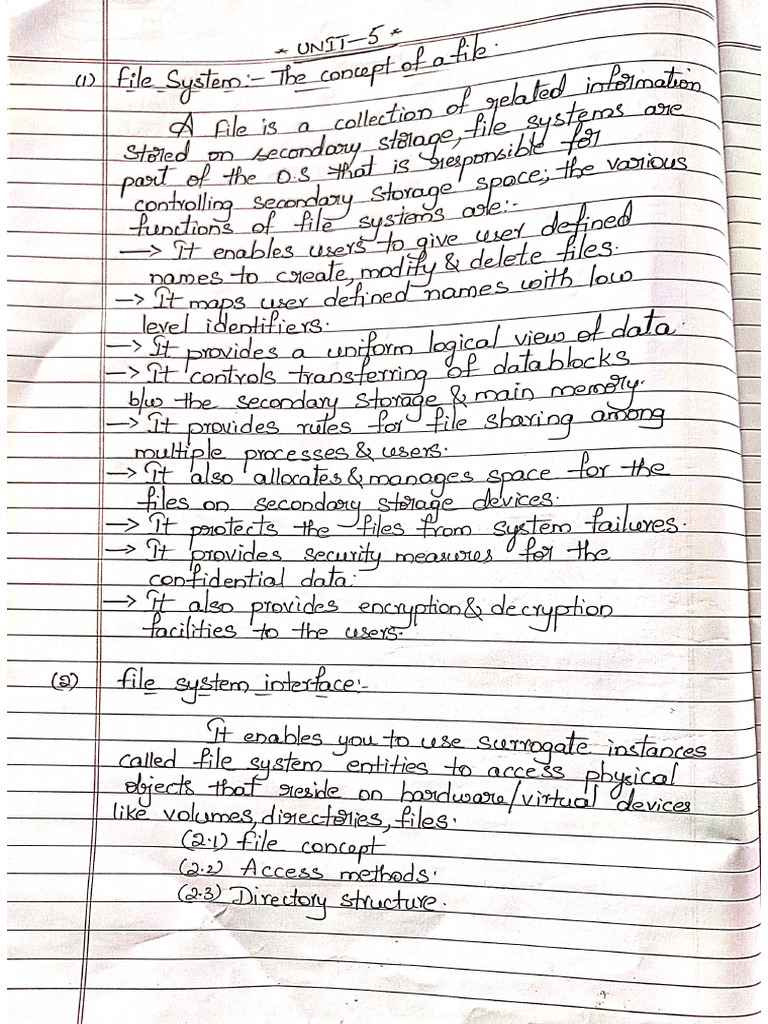 * UNIT-5 *
(1) file System:- The concept of a file.
A file is a collection of related information
stored on secondary storage, file systems are
part of the O.S that is responsible for
controlling secondary storage space; the various
functions of file systems are:-
→ It enables users to give user defined
names to create, modify & delete files.
→ It maps user defined names with low
level identifiers.
→ It provides a uniform logical view of data.
→ It controls transferring of datablocks
b/w the secondary storage & main memory.
→ It provides rules for file sharing among
multiple processes & users.
→ It also allocates & manages space for the
files on secondary storage devices.
→ It protects the files from system failures.
→ It provides security measures for the
confidential data.
→ It also provides encryption & decryption
facilities to the users.
(2) file system interface:-
It enables you to use surrogate instances
called file system entities to access physical
objects that reside on hardware/virtual devices
like volumes, directories, files.
(2.1) file concept
(2.2) Access methods.
(2.3) Directory structure.